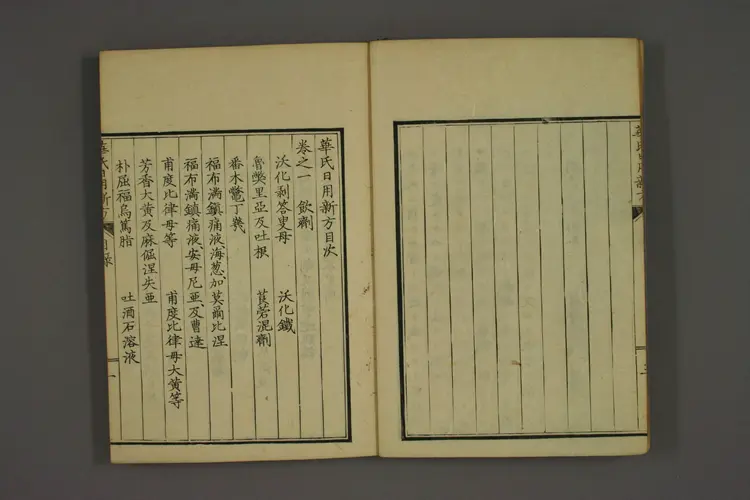 華氏日用新方
三
華氏日用新方目次
卷之一　飲劑
沃化剥答叟母　沃化鐵
魯僰里亞及吐根　莨菪混劑
番木鼈丁幾
福布満鎮痛液、海葱、加莫爾比涅
福布満鎮痛液、安母尼亜、及曹達
甫度比律毋等　甫度比律毋大黄等
芳香大黄及麻倔涅失亜
朴屈福烏篤脂　吐酒石溶液
華氏日用新方　目録　一